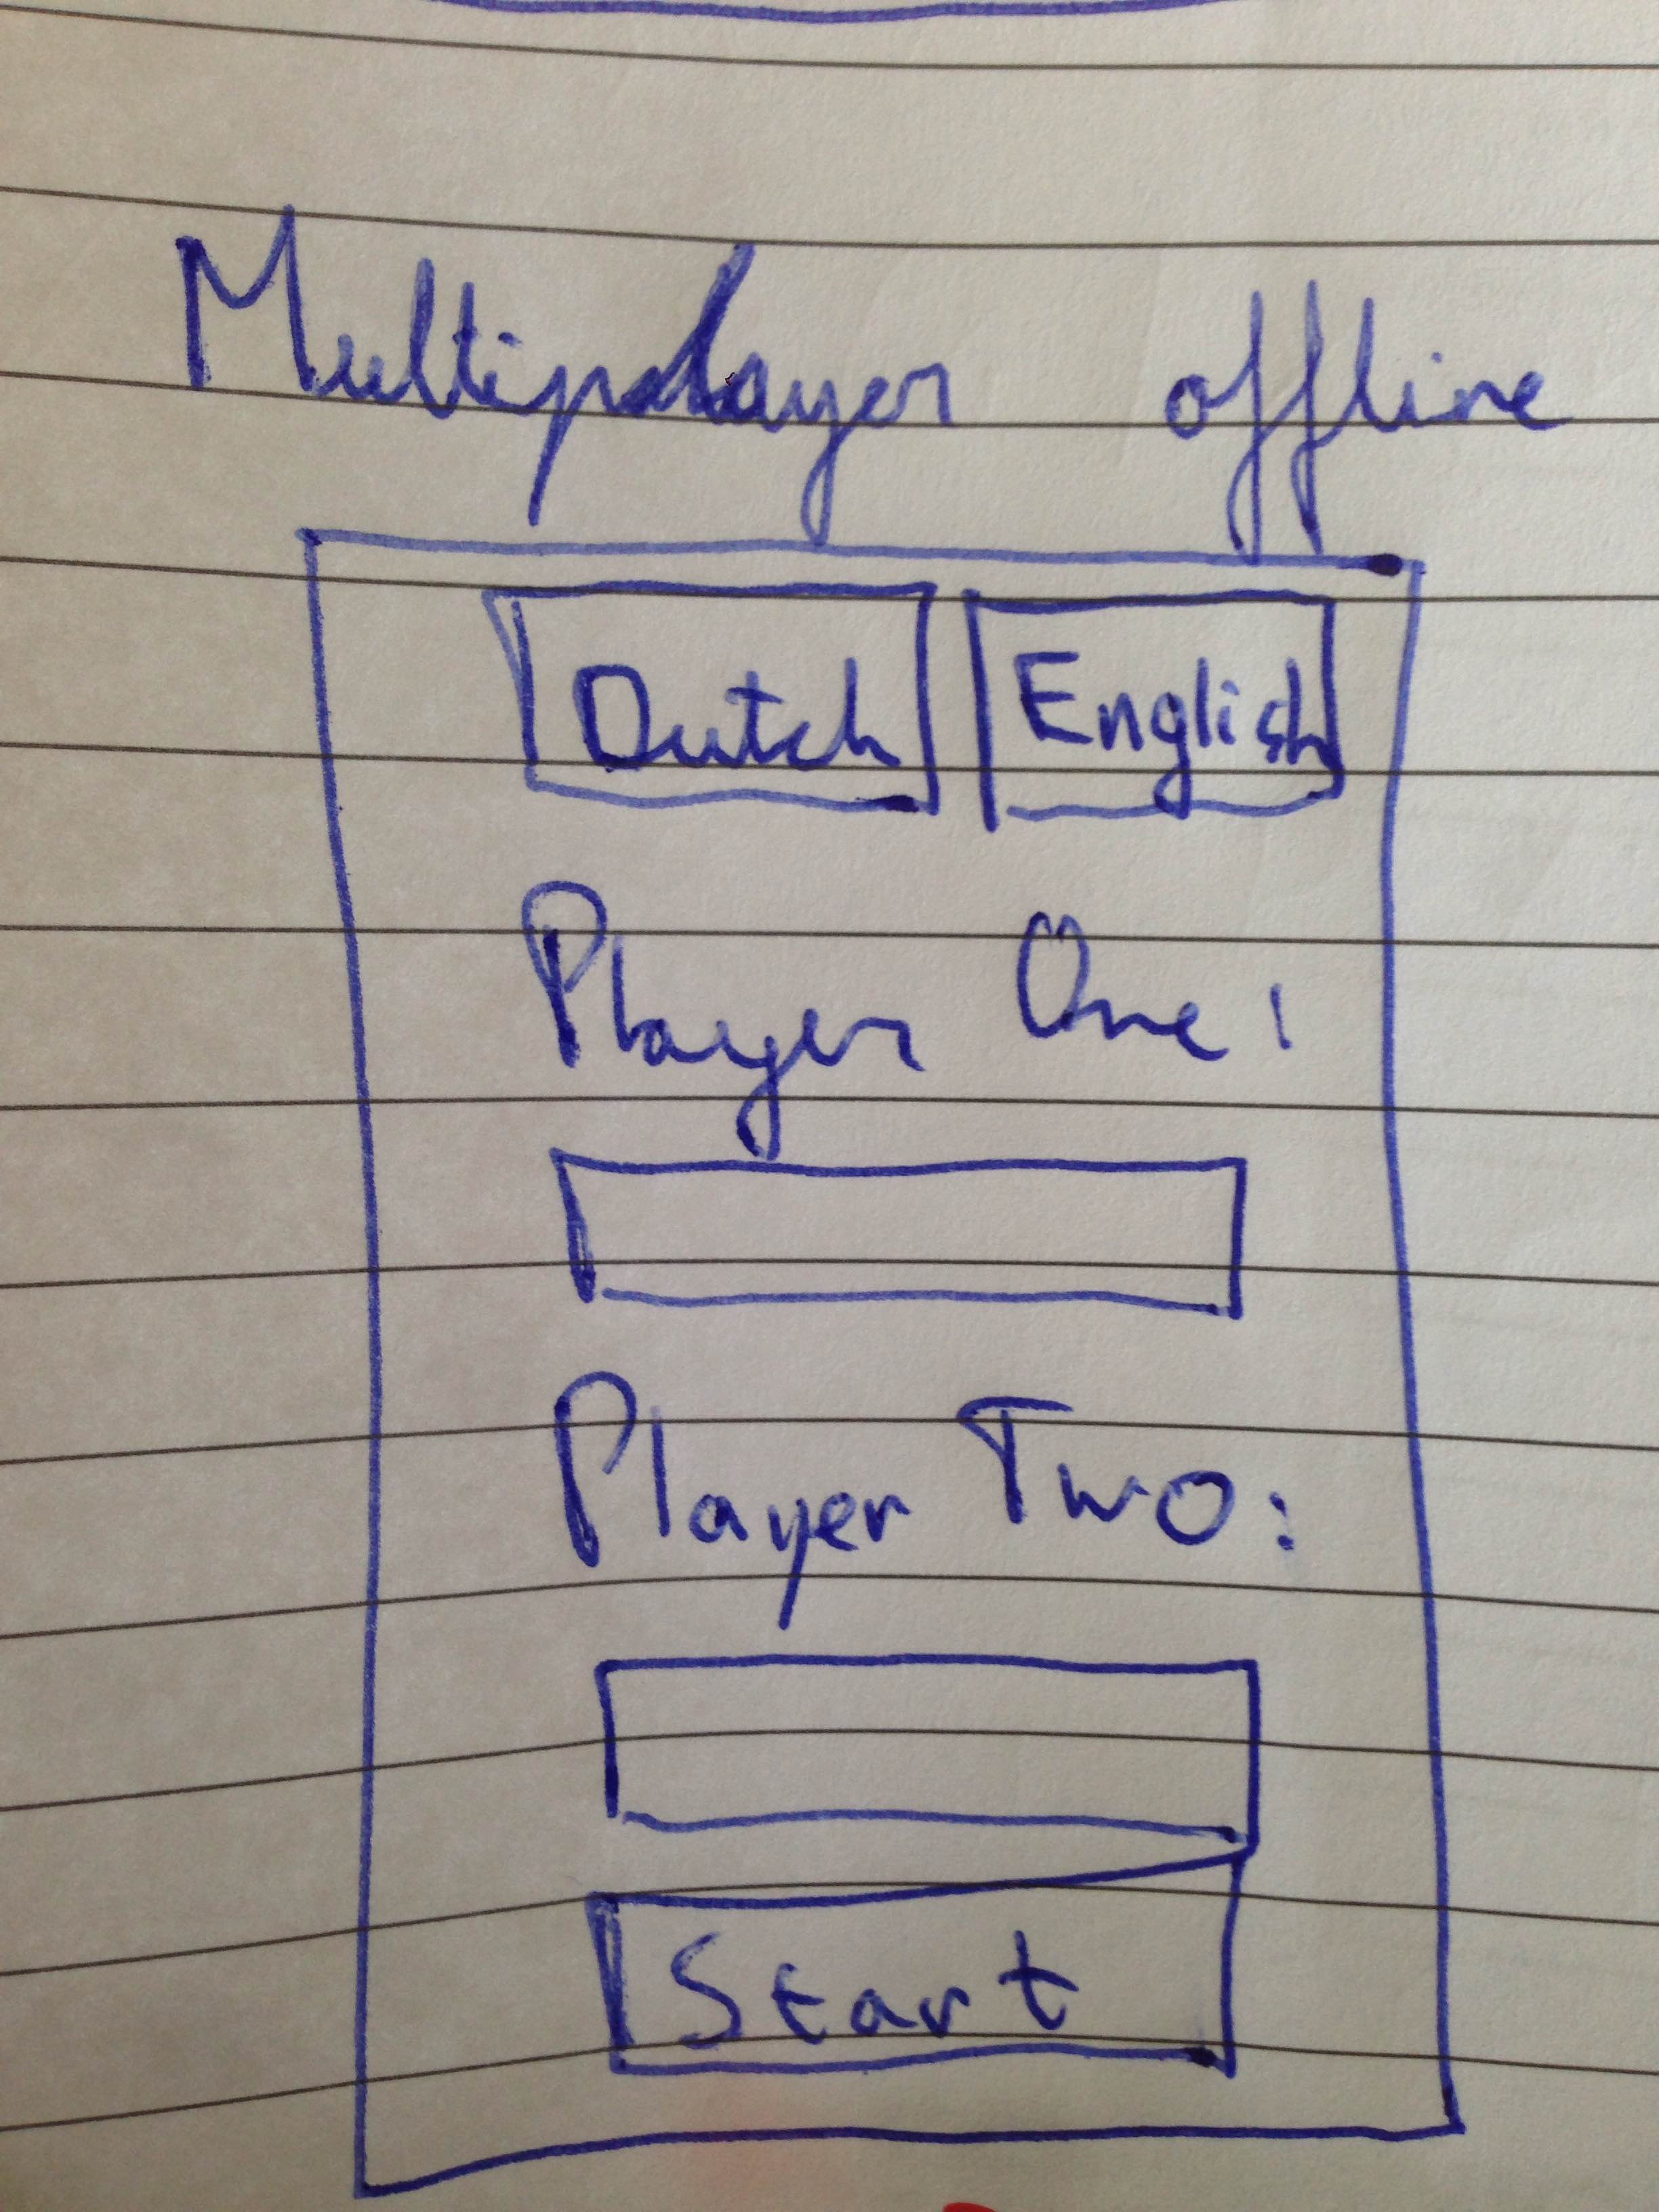 Multiplayer offline
Dutch English
Player One:
Player Two:
Start